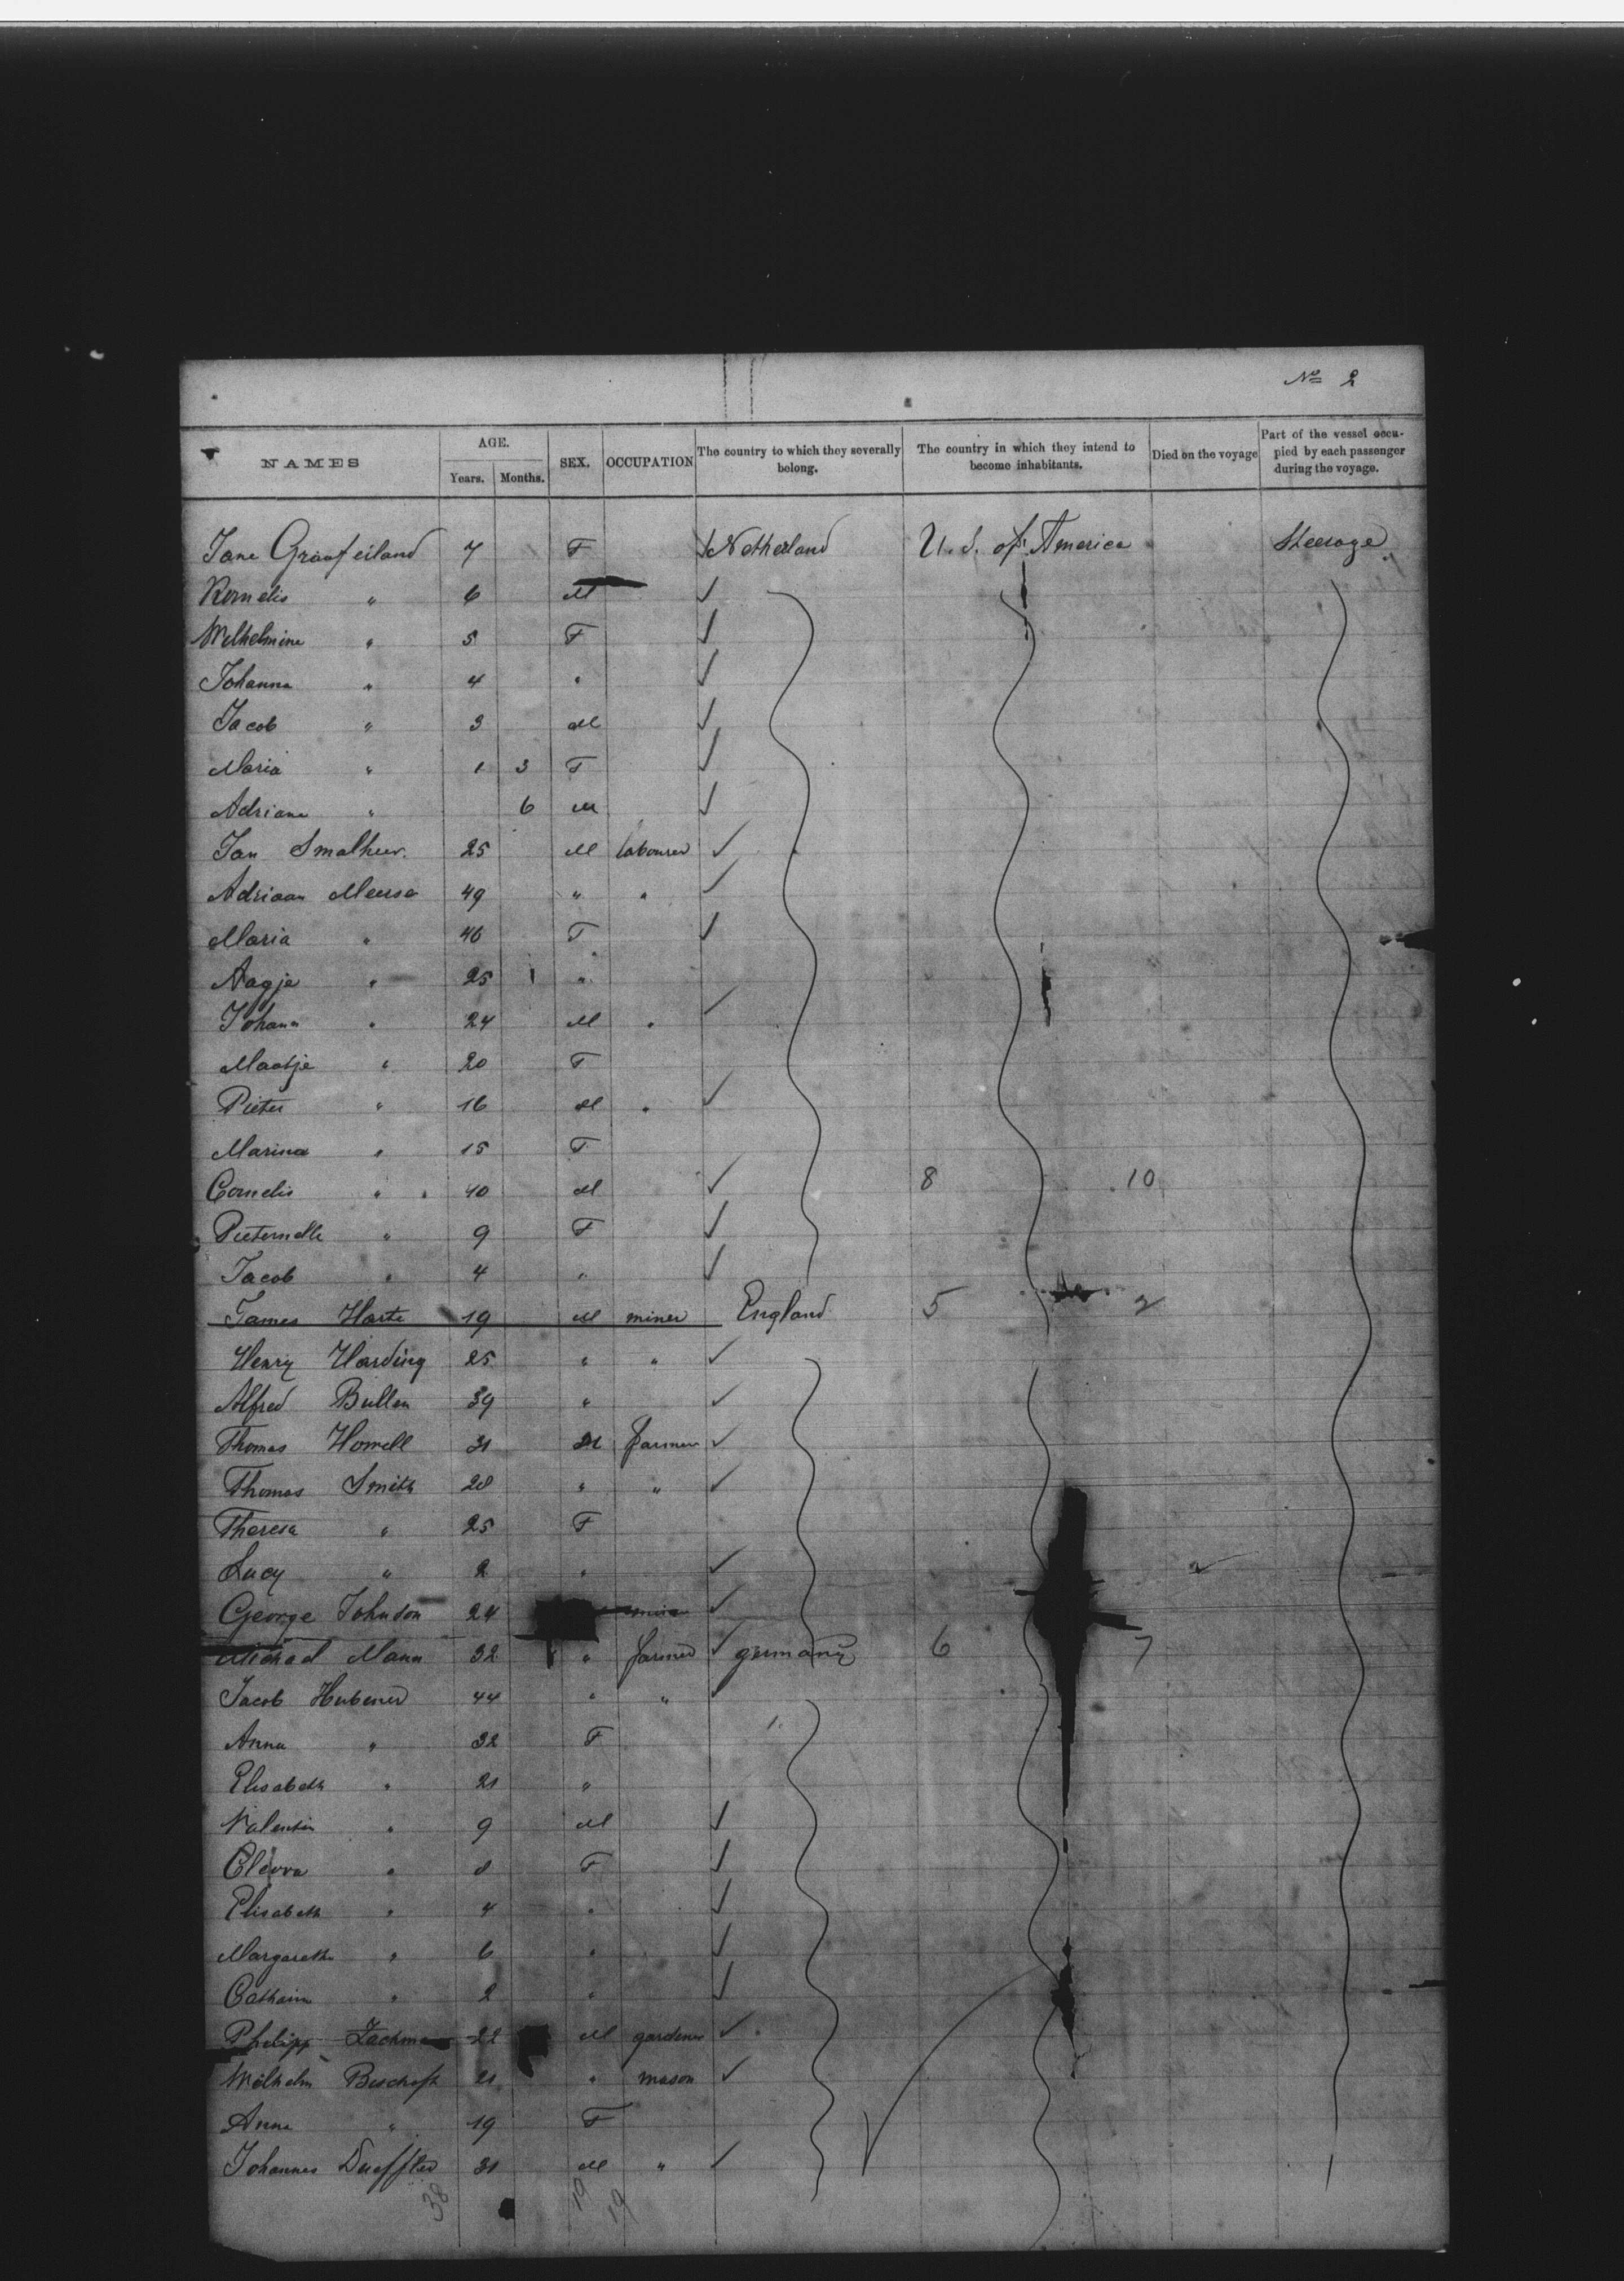 No 2
NAMES AGE. Years. Months. SEX. OCCUPATION The country to which they severally belong. The country in which they intend to become inhabitants. Died on the voyage Part of the vessel occupied by each passenger during the voyage.
Jane Graafeiland 7 F Netherland U. S. of America Steerage
Kornelis " 6 M
Wilhelmine " 5 F
Johanna " 4 "
Jacob " 3 M
Maria " 1 3 F
Adriane " 6 M
Jan Smalheer 25 M labourer
Adriaan Meerse 49 " "
Maria " 46 F
Aagje " 25 1 "
Johann " 24 M "
Maatje " 20 F
Pieter " 16 M "
Marina " 15 F
Cornelis " 10 M 8 10
Pieternelle " 9 F
Jacob " 4 "
James Harte 19 M miner England 5 2
Henry Harding 25 " "
Alfred Bullen 39 "
Thomas Howell 31 M farmer
Thomas Smith 28 " "
Theresa " 25 F
Lucy " 2 "
George Johnson 24
Michael Mann 32 " farmer germany 6 7
Jacob Hubener 44 " "
Anna " 32 F
Elisabeth " 21 "
Valentin " 9 M
Cleova " 8 F
Elisabeth " 4 "
Margarethe " 6 "
Catharin " 2 "
Philipp 22 M gardener
Wilhelm Bischoff 21 " mason
Anna " 19 F
Johannes 31 M "
38 19 19